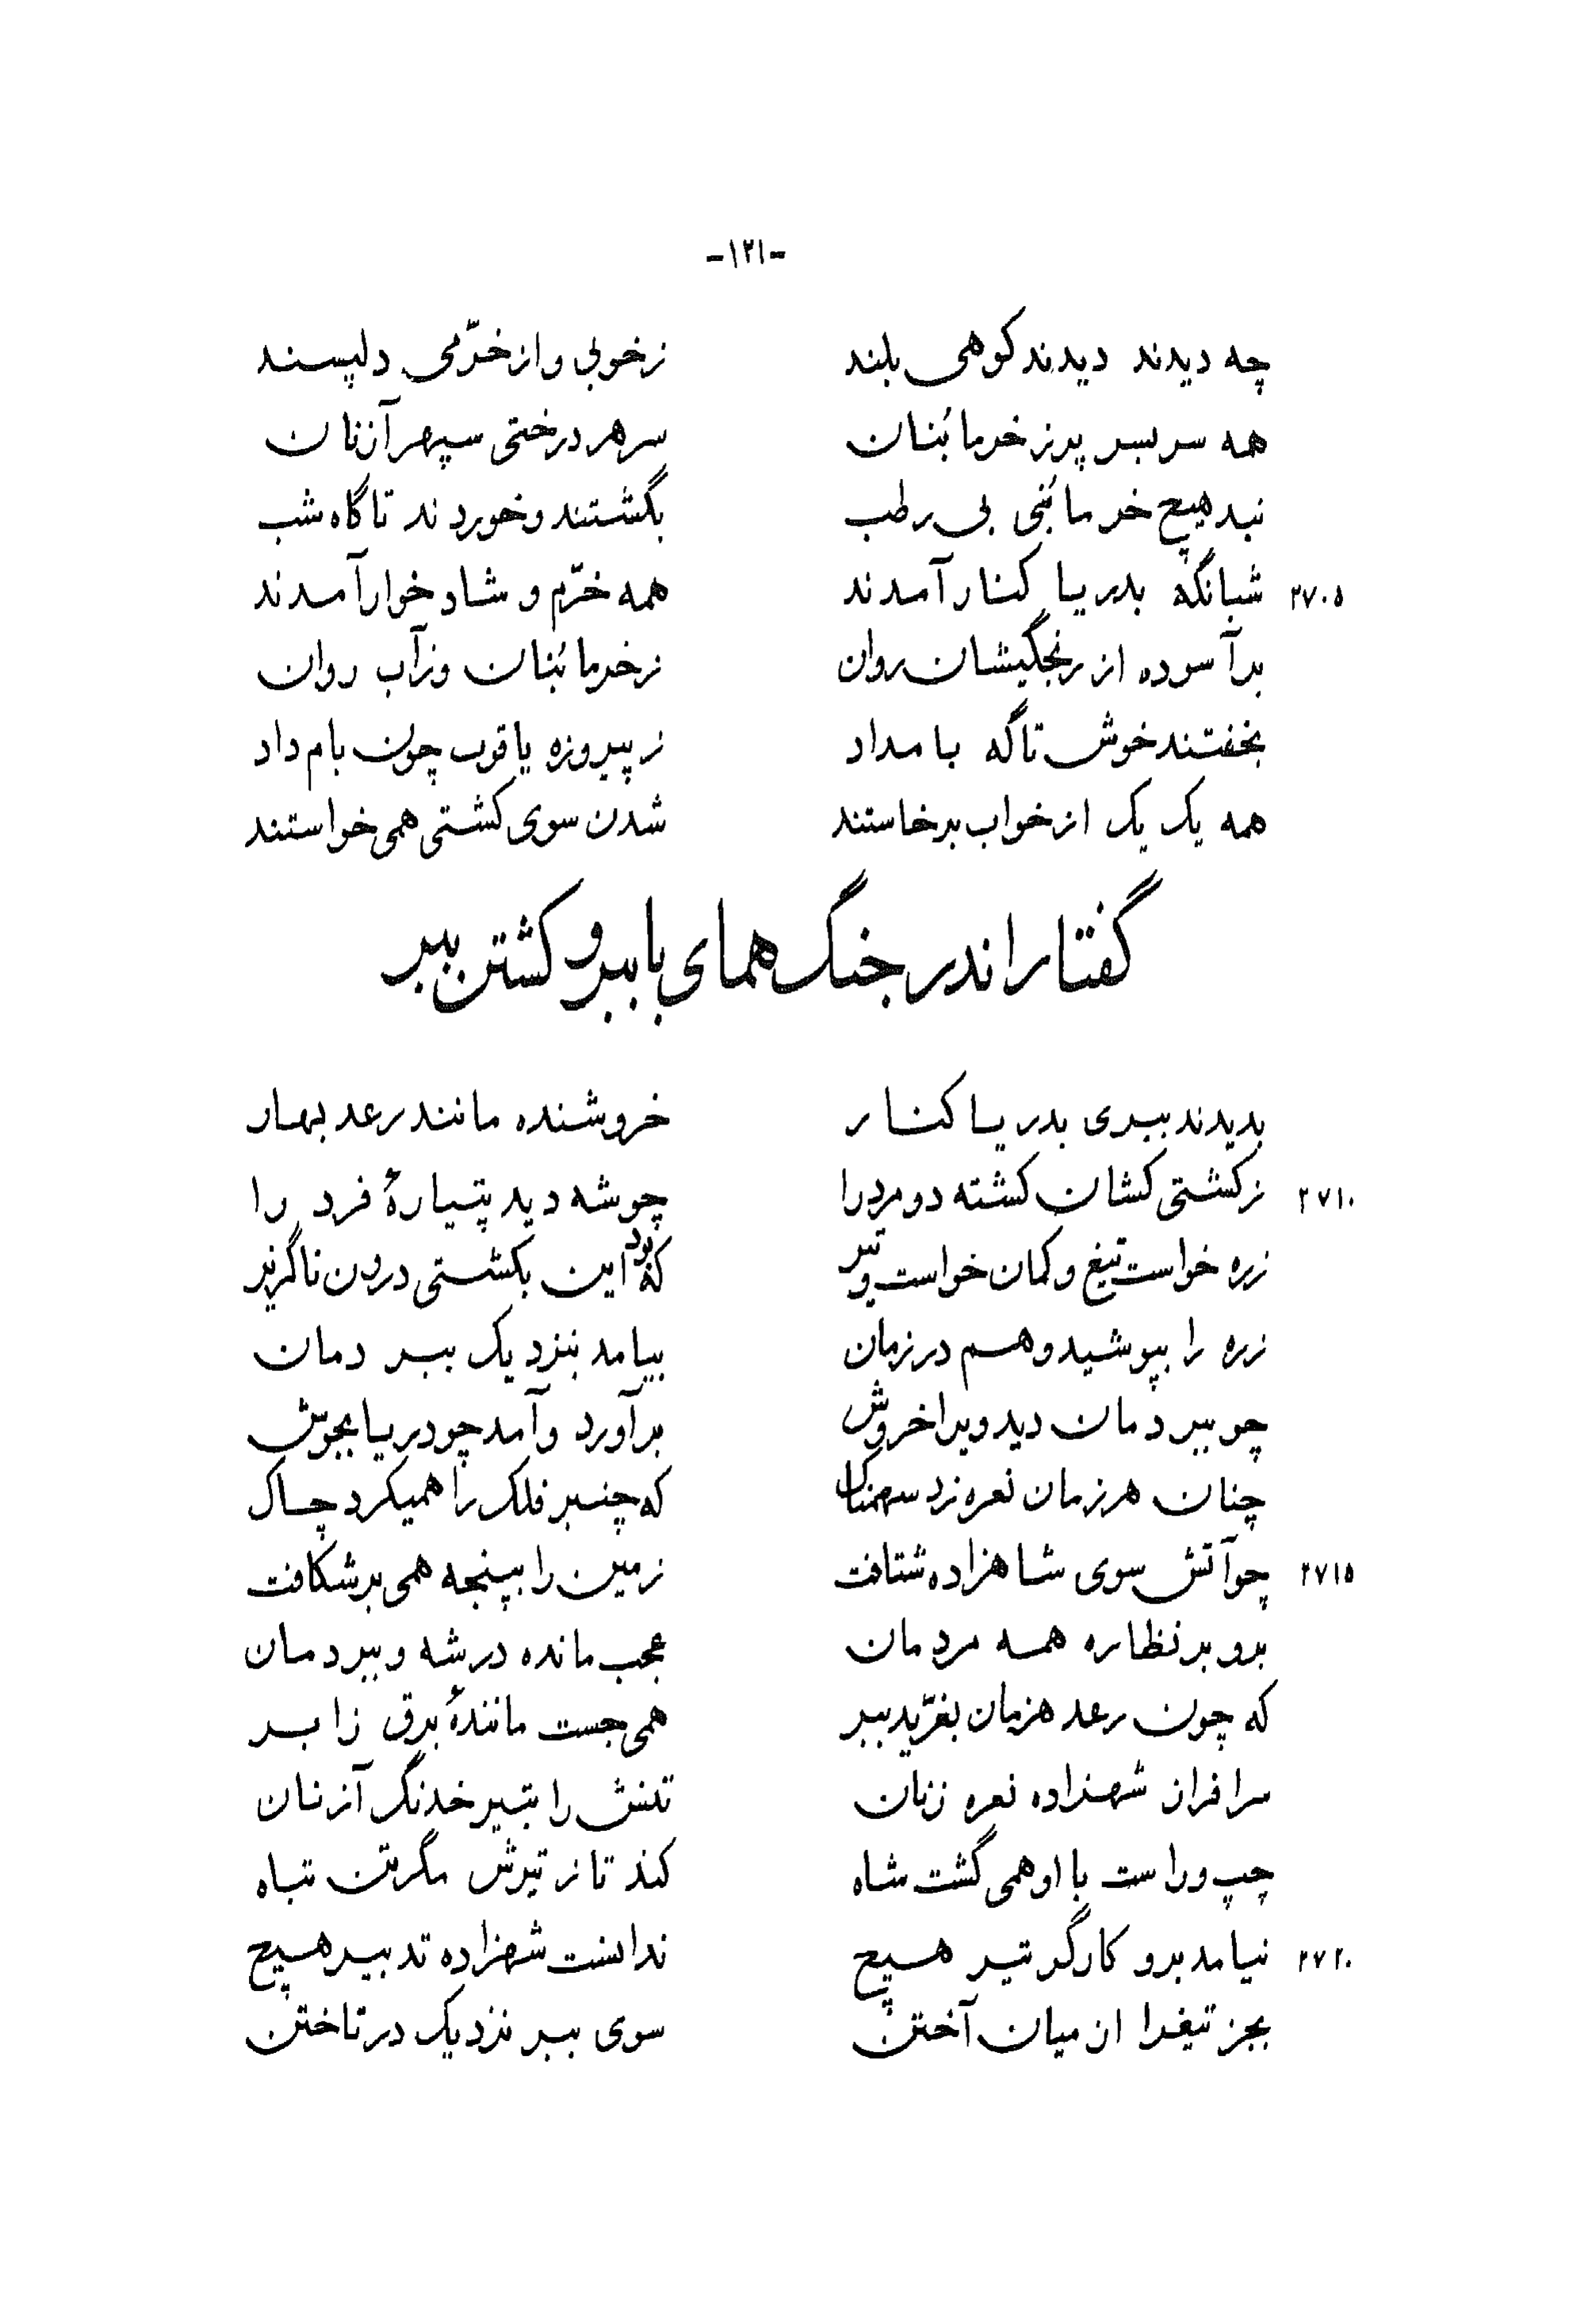 -١٢١-
چه دیدند دیدند کوهی بلند ز خوبی و از خرّمی دلپسند
همه سربسر پر ز خرما بُنان سر هر درختی سپهر آژنان
نبد هیچ خرما بُنی بی رطب بگشتند و خوردند تا گاه شب
٢٧٠٥ شبانگه بدریا کنار آمدند همه خرّم و شاد خوار آمدند
بر آسوده از رنجگیشان روان ز خرما بُنان وز آب روان
بخفتند خوش تا گه بامداد ز پیروزه یاقوت چون بام داد
همه یک یک از خواب برخاستند شدن سوی کشتی همی خواستند
گفتار اندر جنگ همای با ببر و کشتن ببر
بدیدند ببری بدریا کنار خروشنده مانند رعد بهار
٢٧١٠ ز کشتی کشان کشته دو مرد را چو شه دید پتیارهٔ فرد را
زره خواست تیغ و کمان خواست و تیر که بود این بکشتی درون ناگزیر
زره را بپوشید و هم در زمان بیامد بنزدیک ببر دمان
چو ببر دمان دید ویرا خروش برآورد و آمد چو دریا بجوش
چنان هر زمان نعره زد سهمناک که چنبر فلک را همیکرد چاک
٢٧١٥ چو آتش سوی شاهزاده شتافت زمین را بپنجه همی بر شکافت
برو بر نظاره همه مردمان عجب مانده در شه و ببر دمان
که چون رعد هزمان بغرّید ببر همی جست مانندهٔ برق ز ابر
سرافراز شهزاده نعره زنان تنش را بتیر خدنگ آژنان
چپ و راست با او همی گشت شاه کند تا ز تیرش مگر تن تباه
٢٧٢٠ نیامد برو کارگر تیر هیچ ندانست شهزاده تدبیر هیچ
بجز تیغ را از میان آختن سوی ببر نزدیک در تاختن